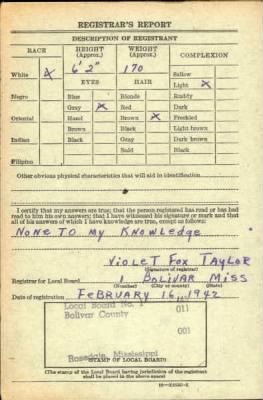 REGISTRAR'S REPORT
DESCRIPTION OF REGISTRANT
RACE HEIGHT (Approx.) WEIGHT (Approx.) COMPLEXION
White X 6' 2" 170 Sallow
EYES HAIR Light X
Negro Blue Blonde Ruddy
Gray X Red Dark
Oriental Hazel Brown X Freckled
Brown Black Light brown
Indian Black Gray Dark brown
Bald Black
Filipino
Other obvious physical characteristics that will aid in identification
I certify that my answers are true; that the person registered has read or has had
read to him his own answers; that I have witnessed his signature or mark and that
all of his answers of which I have knowledge are true, except as follows:
NONE TO MY KNOWLEDGE
VIOLET FOX TAYLOR
(Signature of registrar)
Registrar for Local Board 1 BOLIVAR MISS
(Number) (City or county) (State)
Date of registration FEBRUARY 16, 1942
Local Board No. 1
Bolivar County
011
001
Rosedale, Mississippi
STAMP OF LOCAL BOARD
(The stamp of the Local Board having jurisdiction of the registrant
shall be placed in the above space)